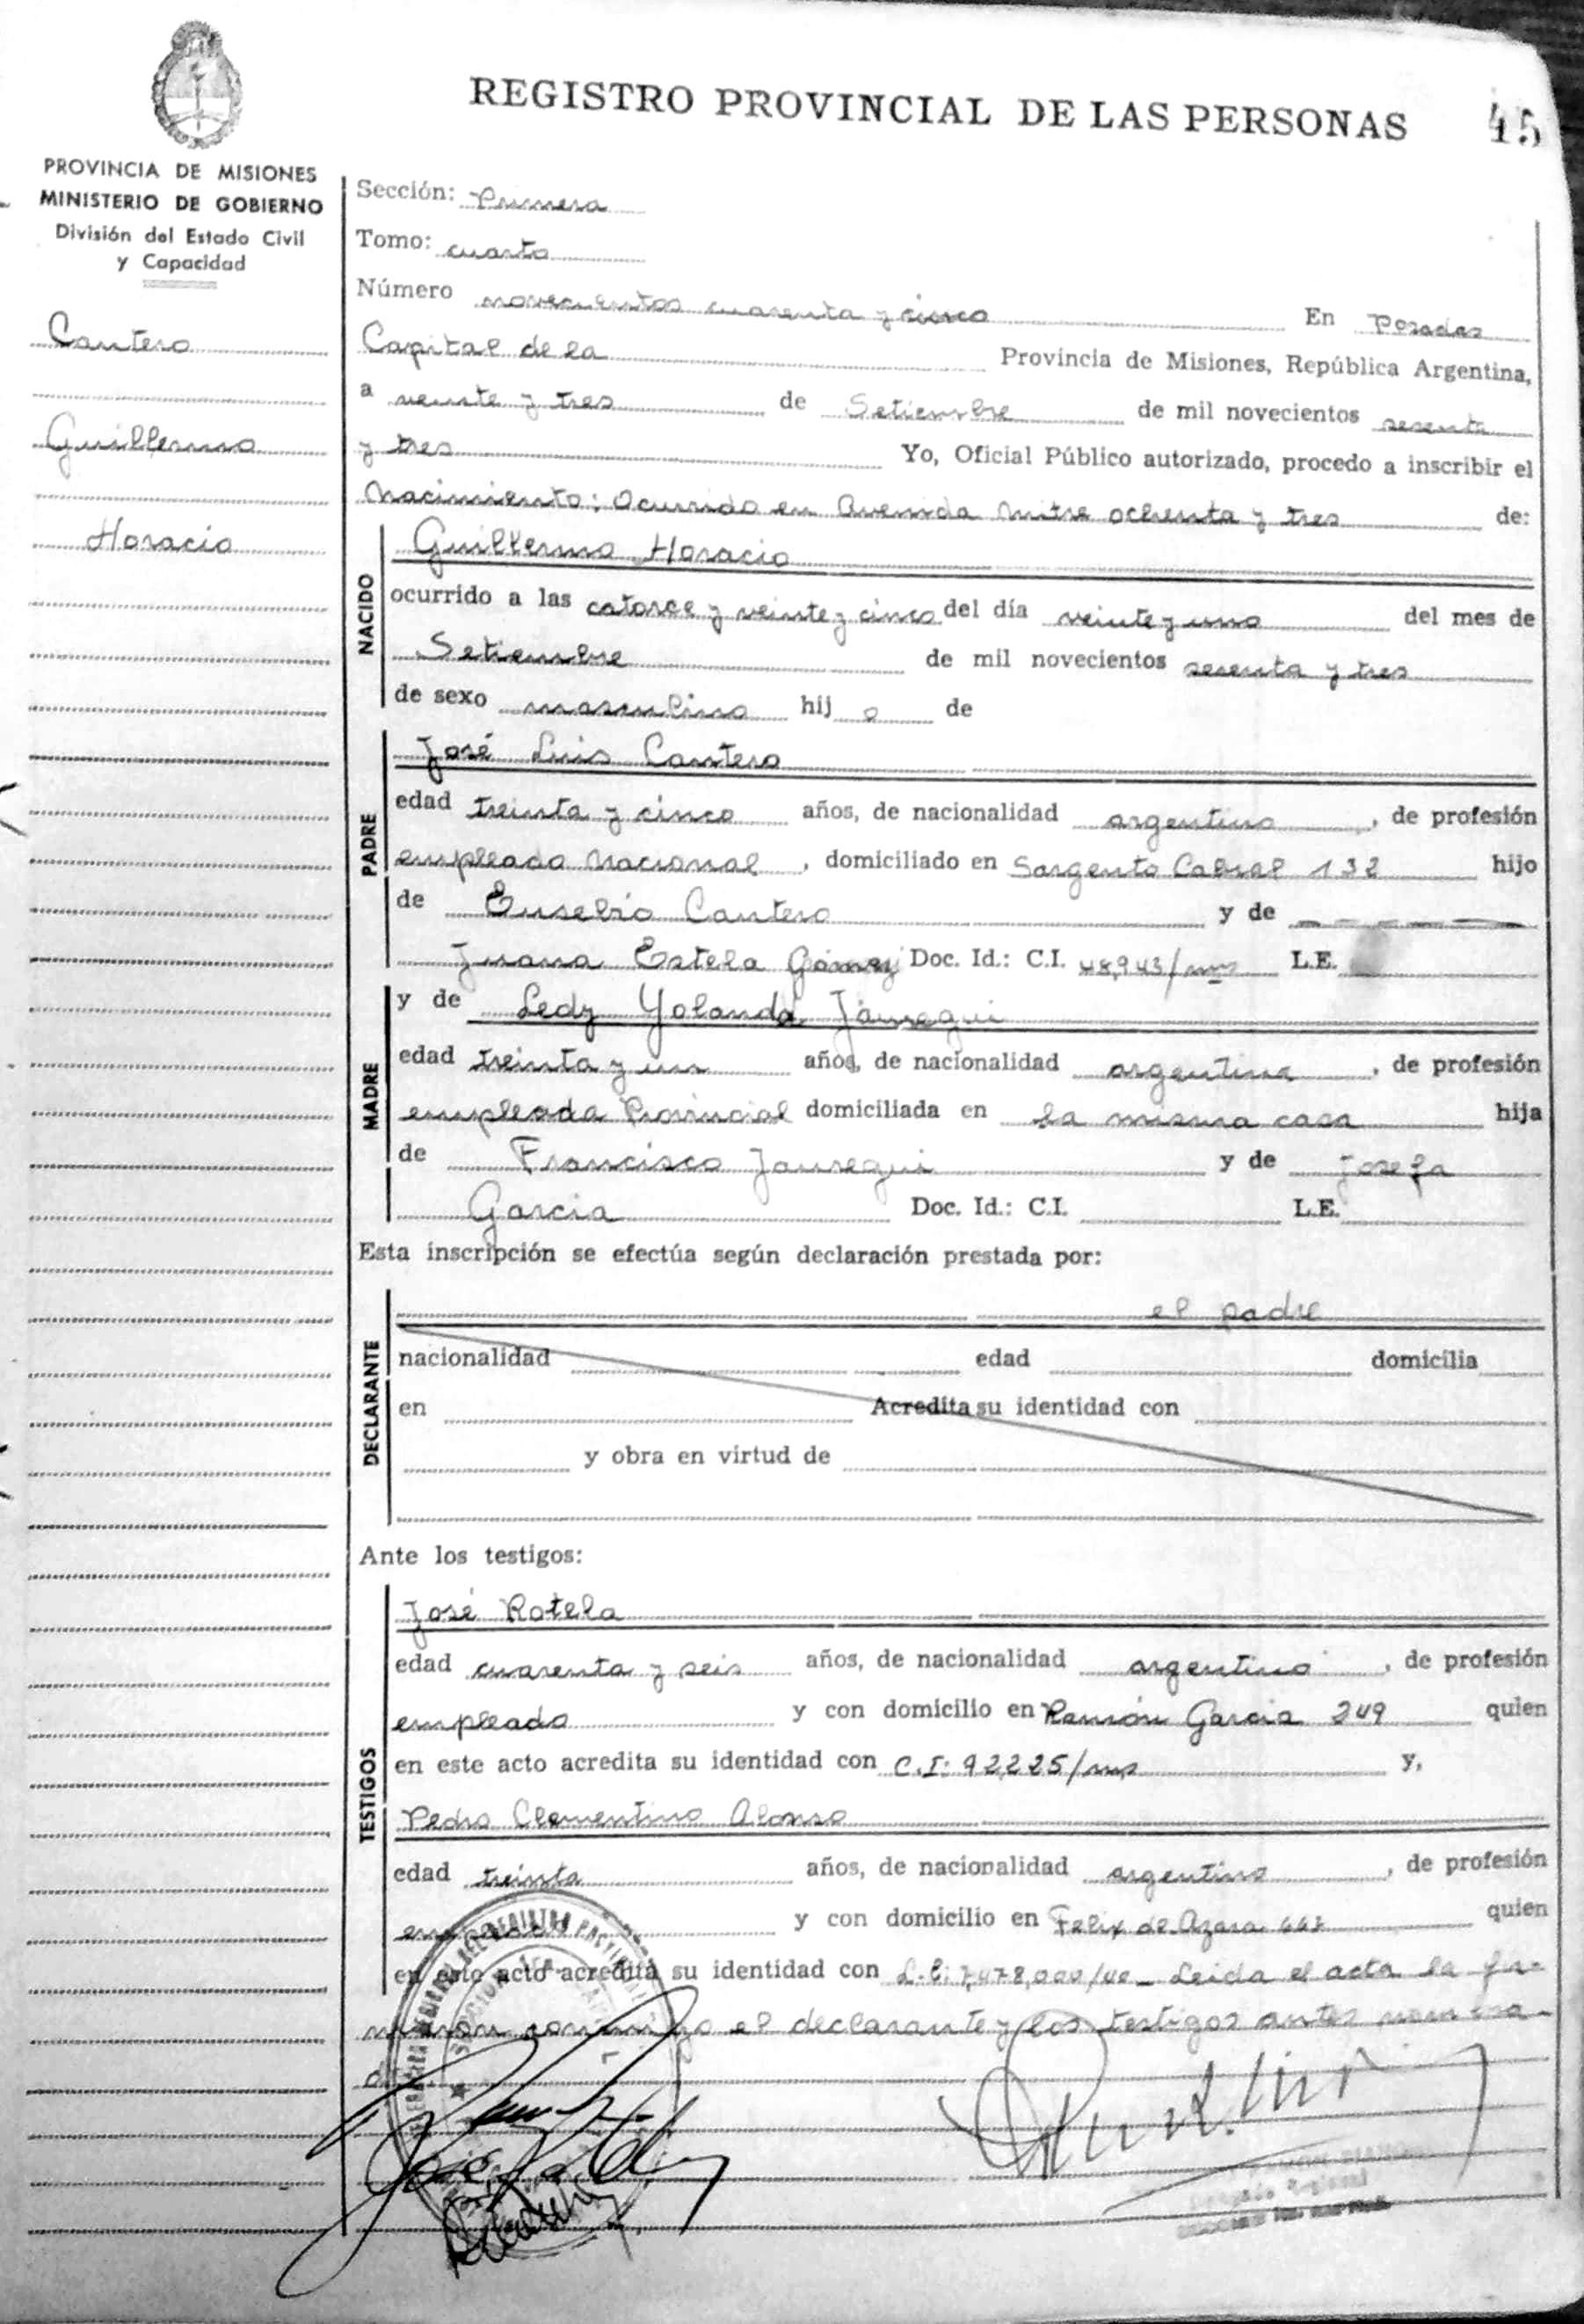 REGISTRO PROVINCIAL DE LAS PERSONAS 45
PROVINCIA DE MISIONES
MINISTERIO DE GOBIERNO
División del Estado Civil
y Capacidad
Cantero
Guillermo
Horacio
Sección: Primera
Tomo: cuarto
Número novecientos cuarenta y cinco En Posadas
Capital de la Provincia de Misiones, República Argentina,
a veinte y tres de Setiembre de mil novecientos sesenta
y tres Yo, Oficial Público autorizado, procedo a inscribir el
Nacimiento: Ocurrido en Avenida Mitre ochenta y tres de:
NACIDO
Guillermo Horacio
ocurrido a las catorce y veinte y cinco del día veinte y uno del mes de
Setiembre de mil novecientos sesenta y tres
de sexo masculino hij o de
PADRE
José Luis Cantero
edad treinta y cinco años, de nacionalidad argentino, de profesión
empleado Nacional, domiciliado en Sargento Cabral 132 hijo
de Eusebio Cantero y de
Juana Estela Gómez Doc. Id.: C.I. 48,943/mns L.E.
MADRE
y de Ledy Yolanda Jáuregui
edad treinta y un años, de nacionalidad argentina, de profesión
empleada Provincial domiciliada en la misma casa hija
de Francisco Jauregui y de Josefa
Garcia Doc. Id.: C.I. L.E.
Esta inscripción se efectúa según declaración prestada por:
DECLARANTE
el padre
nacionalidad edad domicilia
en Acredita su identidad con
y obra en virtud de
Ante los testigos:
TESTIGOS
José Rotela
edad cuarenta y seis años, de nacionalidad argentino, de profesión
empleado y con domicilio en Ramón Garcia 249 quien
en este acto acredita su identidad con C.I: 92,225/mns y,
Pedro Clementino Alonso
edad treinta años, de nacionalidad argentino, de profesión
empleado y con domicilio en Felix de Azara quien
en este acto acredita su identidad con Leida el acta la fir-
maron conmigo el declarante y los testigos antes nombra-